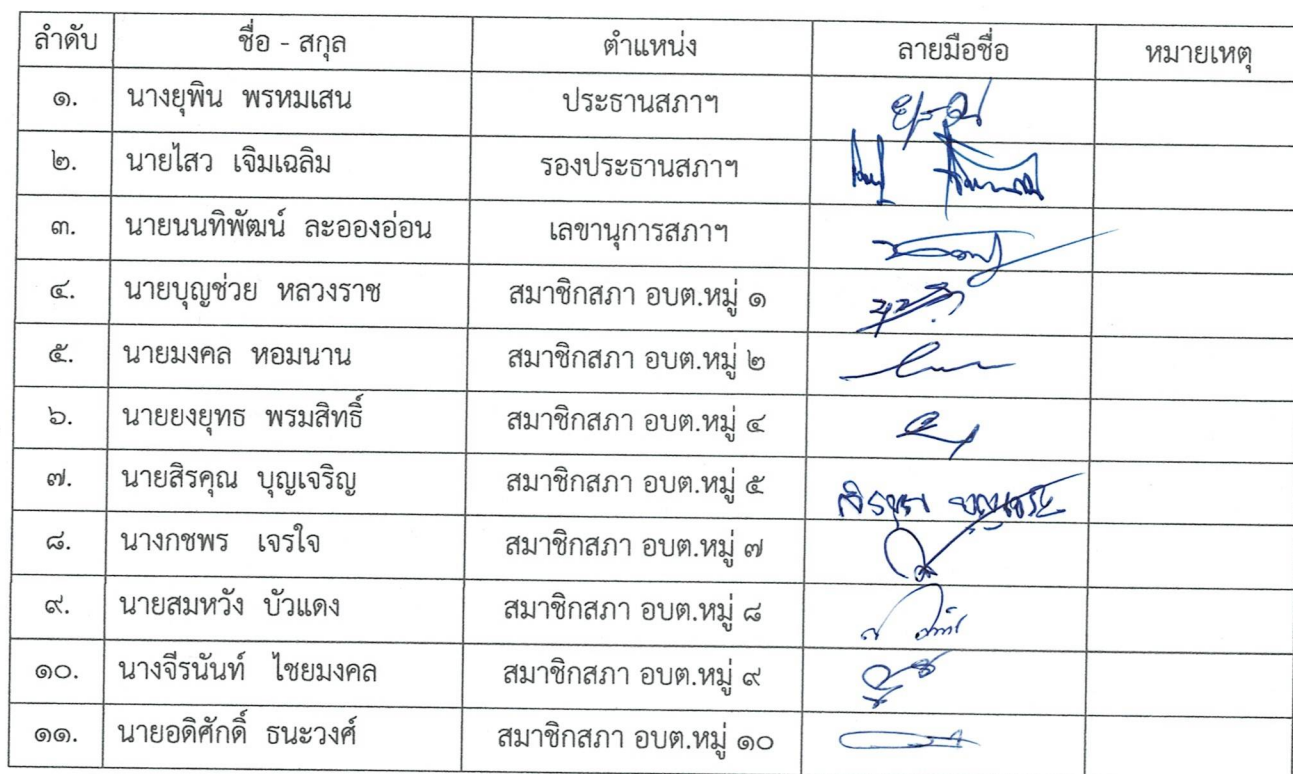 ลำดับ ชื่อ - สกุล ตำแหน่ง ลายมือชื่อ หมายเหตุ
๑. นางยุพิน พรหมเสน ประธานสภาฯ
๒. นายไสว เจิมเฉลิม รองประธานสภาฯ
๓. นายนนทิพัฒน์ ละอองอ่อน เลขานุการสภาฯ
๔. นายบุญช่วย หลวงราช สมาชิกสภา อบต.หมู่ ๑
๕. นายมงคล หอมนาน สมาชิกสภา อบต.หมู่ ๒
๖. นายยงยุทธ พรมสิทธิ์ สมาชิกสภา อบต.หมู่ ๔
๗. นายสิรคุณ บุญเจริญ สมาชิกสภา อบต.หมู่ ๕ สิรคุณ บุญเจริญ
๘. นางกชพร เจรใจ สมาชิกสภา อบต.หมู่ ๗
๙. นายสมหวัง บัวแดง สมาชิกสภา อบต.หมู่ ๘
๑๐. นางจีรนันท์ ไชยมงคล สมาชิกสภา อบต.หมู่ ๙
๑๑. นายอดิศักดิ์ ธนะวงศ์ สมาชิกสภา อบต.หมู่ ๑๐